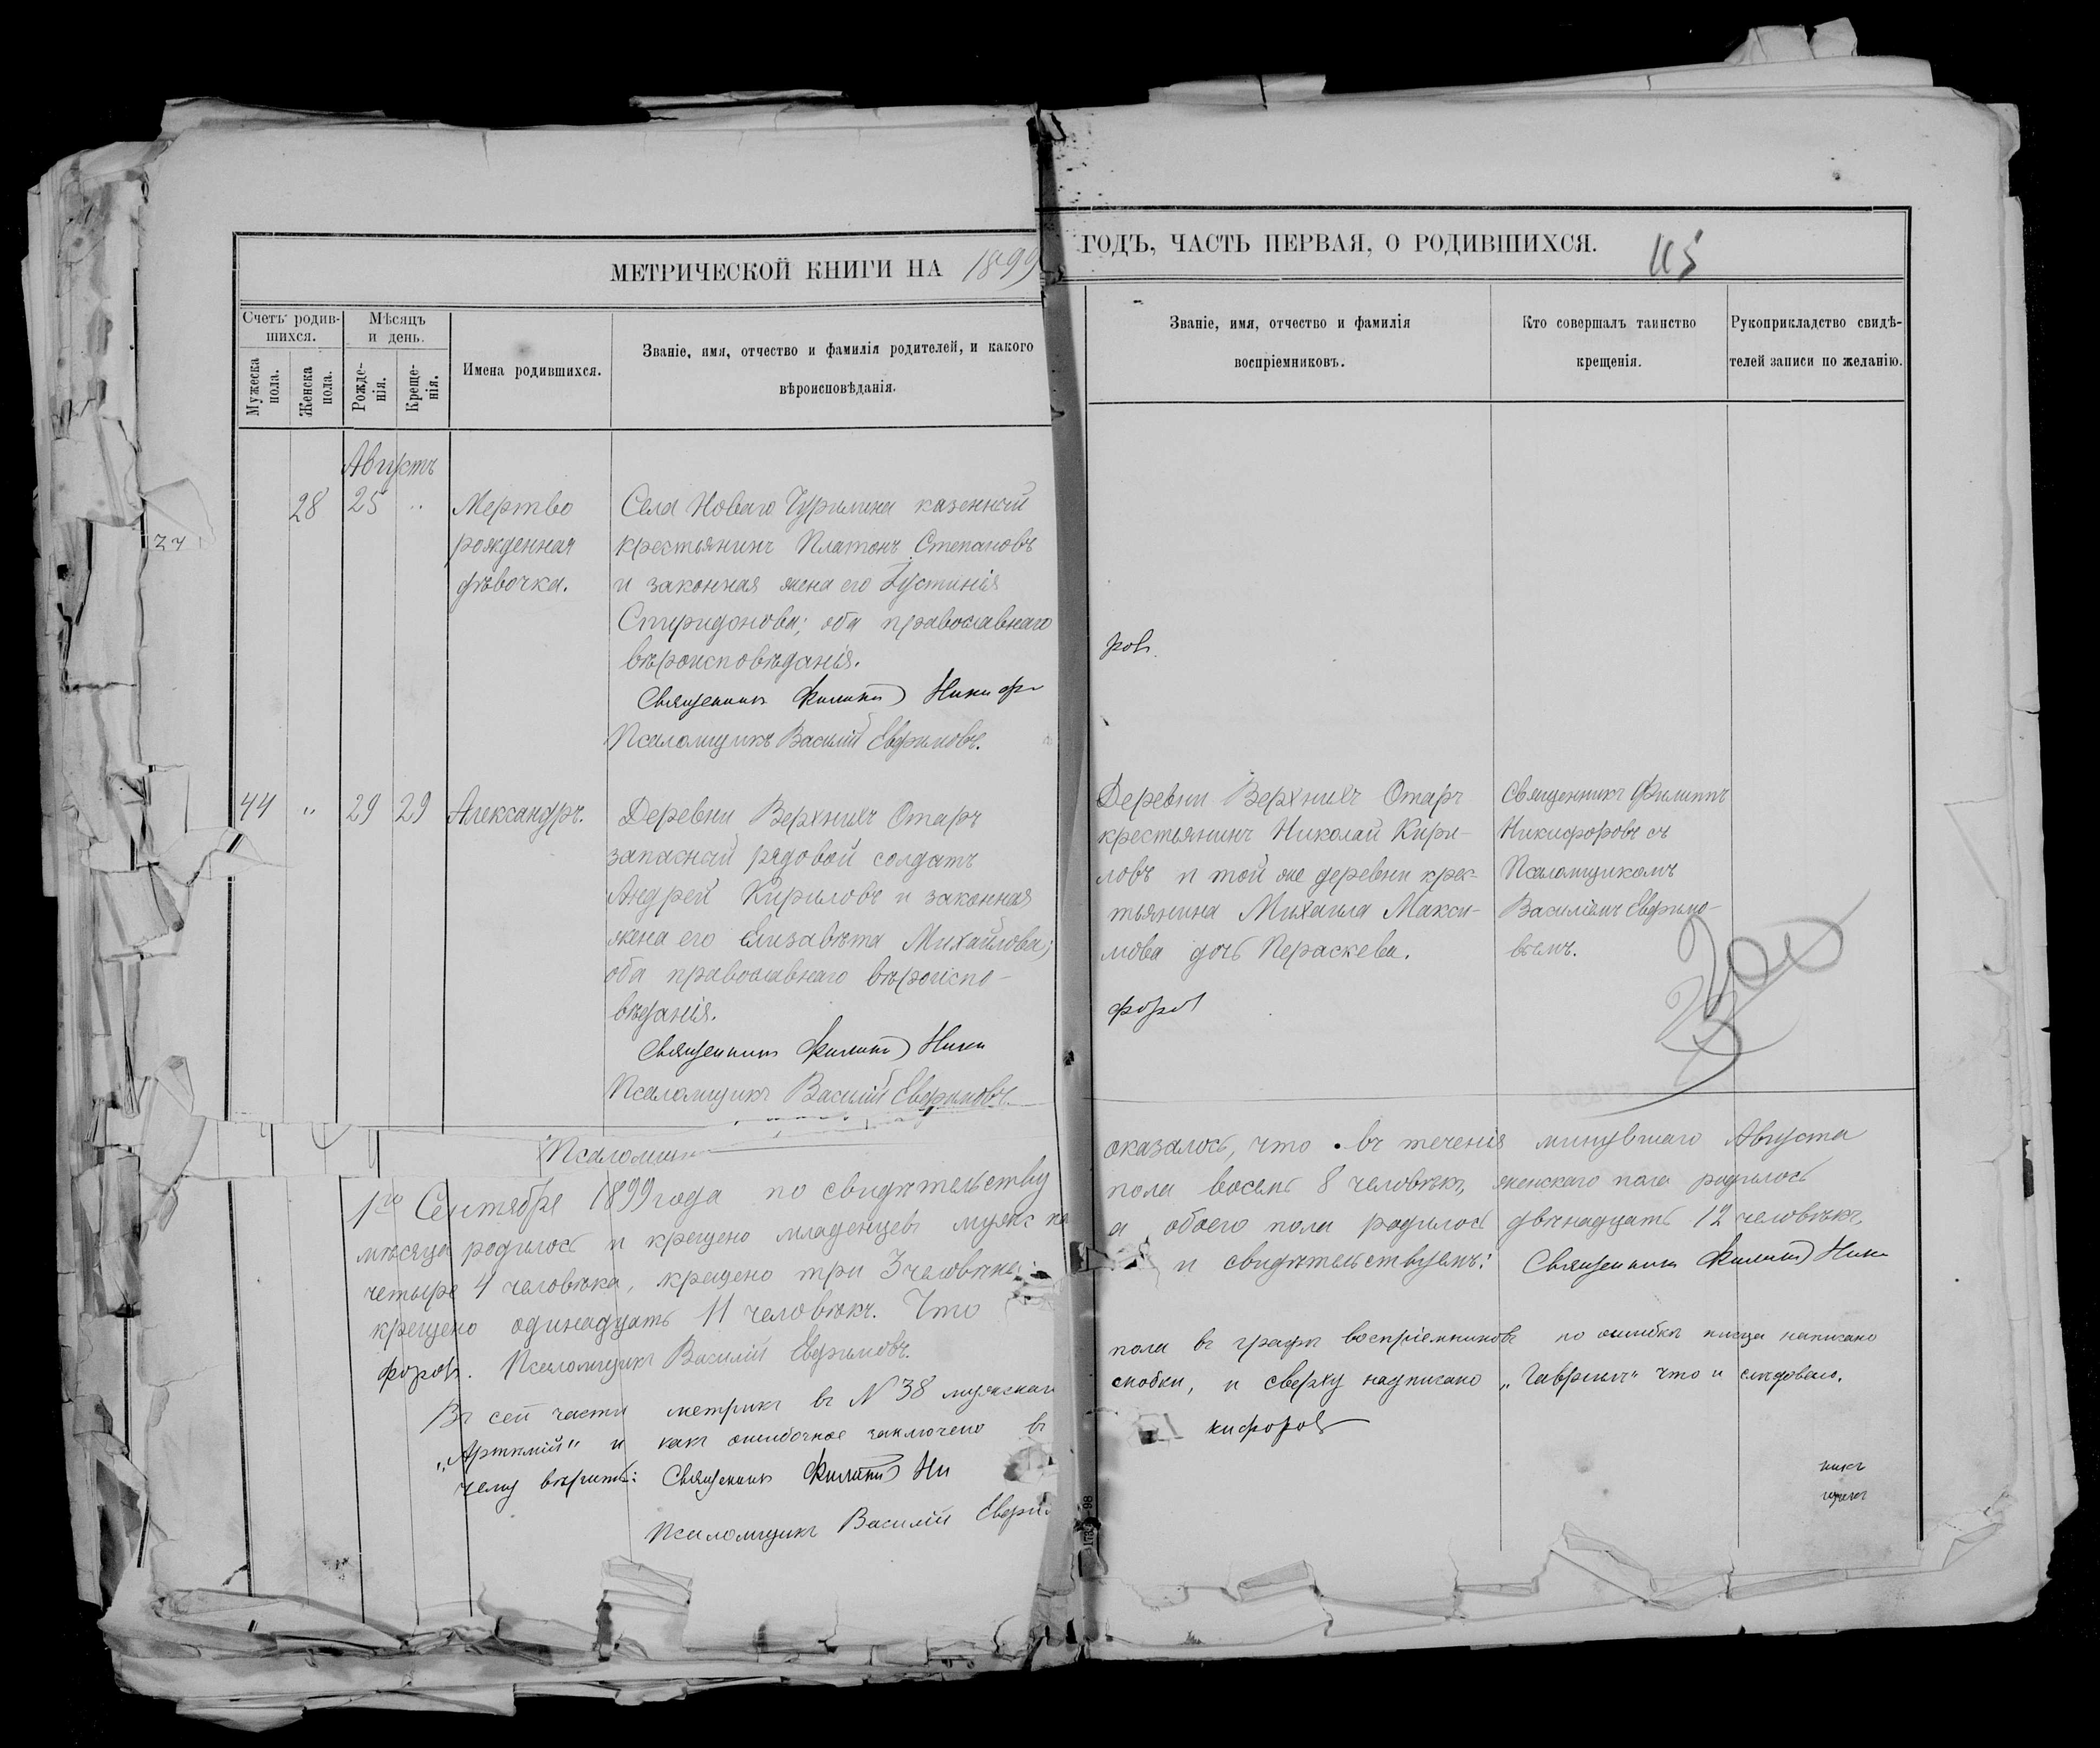 МЕТРИЧЕСКОЙ КНИГИ НА 1899
ГОДЪ, ЧАСТЬ ПЕРВАЯ, О РОДИВШИХСЯ.
115
Счетъ родив-
шихся.
Мужеска
пола.
Женска
пола.
Мѣсяцъ
и день.
Рожде-
нія.
Креще-
нія.
Имена родившихся.
Званіе, имя, отчество и фамилія родителей, и какого
вѣроисповѣданія.
Званіе, имя, отчество и фамилія
воспріемниковъ.
Кто совершалъ таинство
крещенія.
Рукоприкладство свидѣ-
телей записи по желанію.
Августъ
28 25 „
Мертво
рожденная
дѣвочка.
Села Новаго Чурилина казенный
крестьянинъ Платонъ Степановъ
и законная жена его Іустинія
Спиридонова; оба православнаго
вѣроисповѣданія.
Священникъ Филиппъ Никифо
ровъ
Псаломщикъ Василій Евфимовъ.
44 „ 29 29 Александръ.
Деревни Верхнихъ Отаръ
запасный рядовой солдатъ
Андрей Кириловъ и законная
жена его Елизавѣта Михайлова;
оба православнаго вѣроиспо-
вѣданія.
Священникъ Филиппъ Ники
форовъ
Псаломщикъ Василій Евфимовъ.
Деревни Верхнихъ Отаръ
крестьянинъ Николай Кири-
ловъ и той же деревни крес-
тьянина Михаила Макси-
мова дочь Параскева.
Священникъ Филиппъ
Никифоровъ съ
Псаломщикомъ
Василіемъ Евфимо-
вымъ.
Псаломщи
1го Сентября 1899 года по свидѣтельству оказалось, что въ теченія минувшаго Августа
мѣсяца родилось и крещено младенцевъ мужска пола восемь 8 человѣкъ, женскаго пола родилось
четыре 4 человѣка, крещено три 3 человѣка; а обоего пола родилось двѣнадцать 12 человѣкъ,
крещено одинадцать 11 человѣкъ. Что и свидѣтельствуемъ: Священникъ Филиппъ Ники
форовъ. Псаломщикъ Василій Евфимовъ.
Въ сей части метрикъ въ № 38 мужскаго пола въ графѣ воспріемниковъ по ошибкѣ писца написано
„Артемій" и какъ ошибочное заключено въ скобки, и сверху надписано „Гавріилъ" что и слѣдовало.
чему вѣрить: Священникъ Филиппъ Ни кифоровъ
Псаломщикъ Василій Евфим